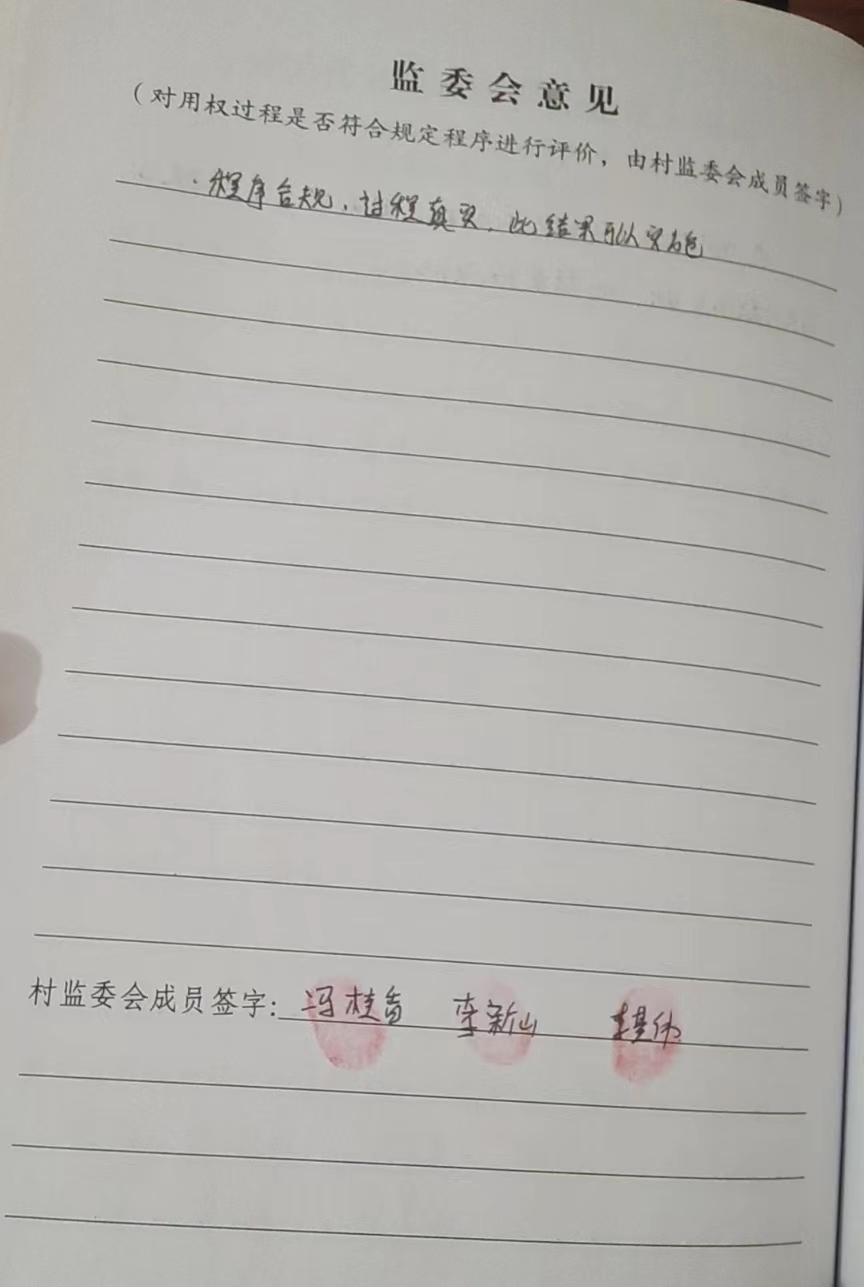 监委会意见
（对用权过程是否符合规定程序进行评价，由村监委会成员签字）
程序合规，过程真实，此结果可以实施
村监委会成员签字：冯桂香 李新山